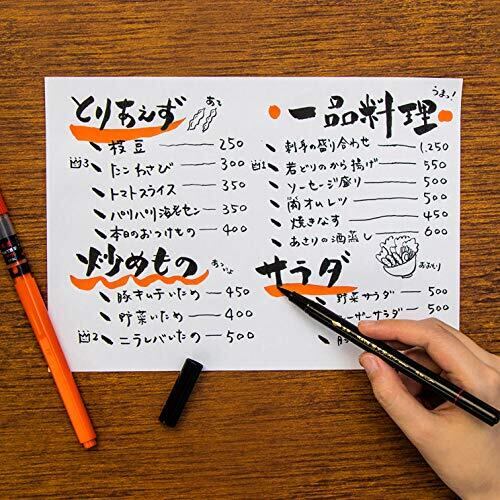 とりあえず
枝豆 250
たこわさび 300
トマトスライス 350
パリパリ海老セン 350
本日のおつけもの 400
炒めもの
豚キムチいため 450
野菜いため 400
ニラレバいため 500
一品料理
うまっ!
刺身の盛り合わせ 1,250
若どりのから揚げ 550
ソーセージ盛り 500
オムレツ 500
焼きなす 450
あさりの酒蒸し 600
サラダ
野菜サラダ 500
ーザーサラダ 500
500